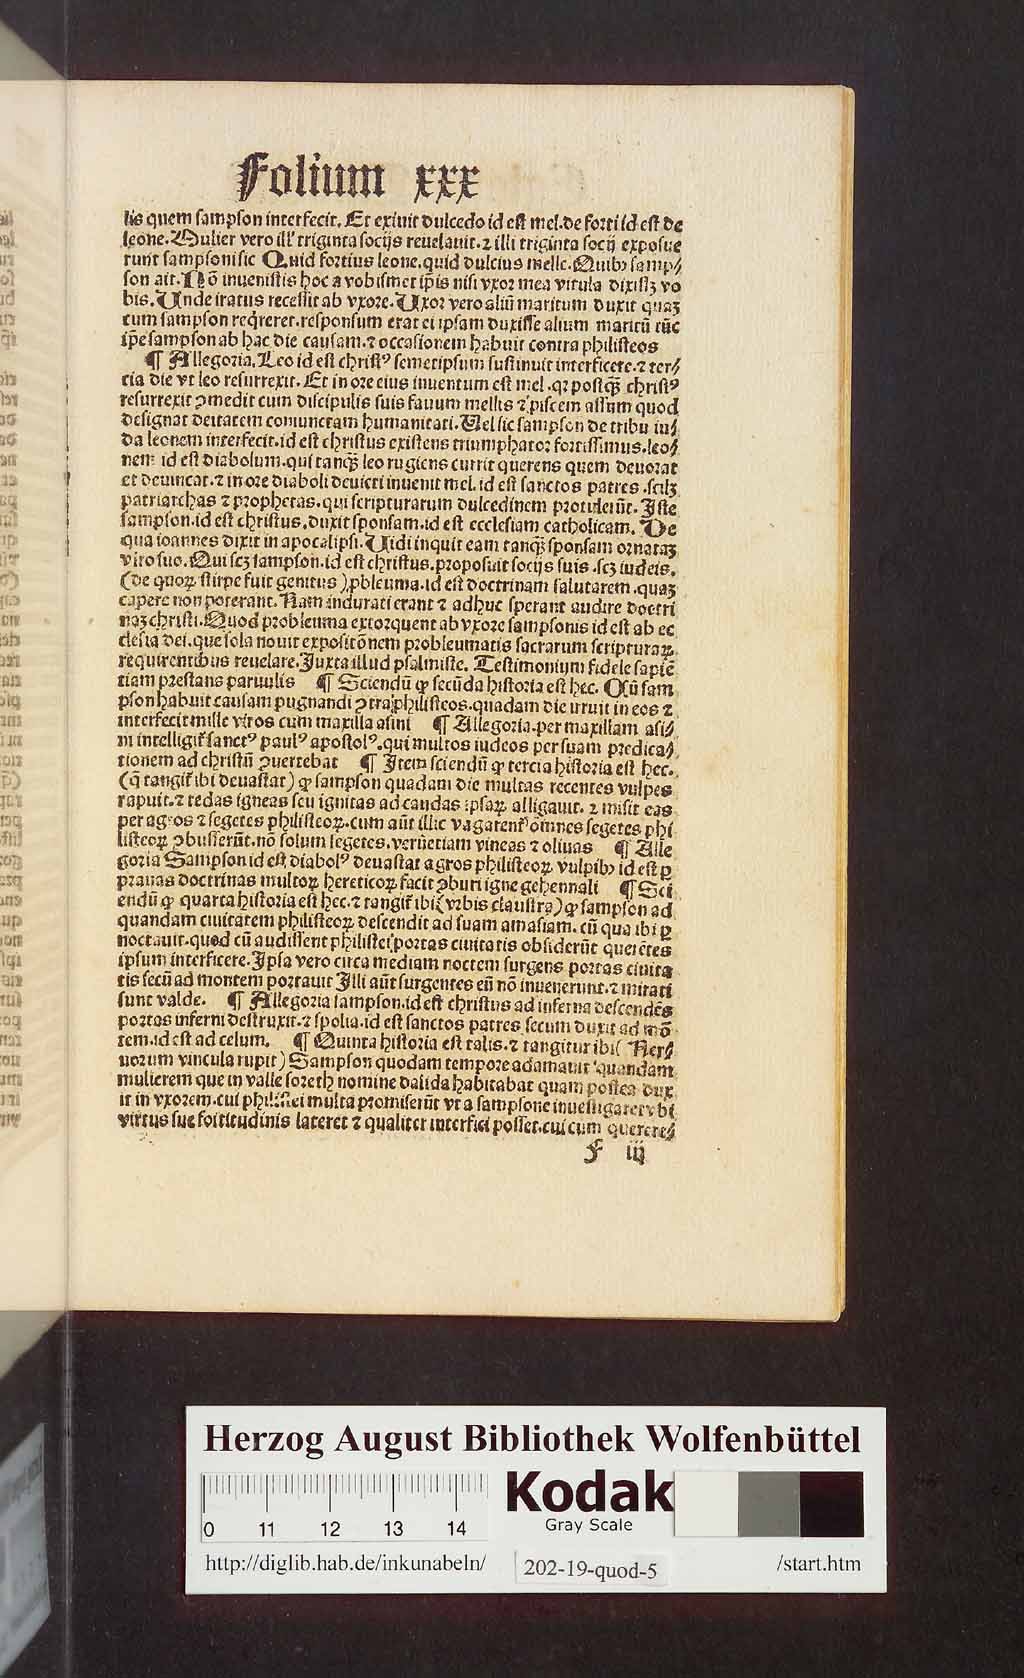 Folium xxx
lis quem sampson interfecit. Et exiuit dulcedo id est mel. de forti id est de
leone. Mulier vero illꝰ triginta socijs reuelauit. ⁊ illi triginta socij exposue
runt sampsoni sic Quid fortius leone. quid dulcius melle. Quibꝫ samp⸗
son ait. Nõ inuenistis hoc a vobismet ip̃is nisi vxor mea vitula dixissꝫ vo
bis. Unde iratus recessit ab vxore. Uxor vero aliũ maritum duxit quaꝫ
cum sampson req̃reret. responsum erat ei ipsam duxisse alium maritũ tũc
ip̃e sampson ab hac die causam. ⁊ occasionem habuit contra philisteos
¶ Allegoria. Leo id est christꝰ semetipsum sustinuit interficere. ⁊ ter⸗
cia die vt leo resurrexit. Et in ore eius inuentum est mel. qꝛ postqꝫ christꝰ
resurrexit ꝯmedit cum discipulis suis fauum mellis ⁊ piscem assum quod
designat deitatem coniunctam humanitati. Uel sic sampson de tribu iu⸗
da leonem interfecit. id est christus existens triumphator fortissimus. leo⸗
nem id est diabolum. qui tanqꝫ leo rugiens currit querens quem deuorat
et deuincat. ⁊ in ore diaboli deuicti inuenit mel. id est sanctos patres. scilꝫ
patriarchas ⁊ prophetas. qui scripturarum dulcedinem protulerũt. Iste
sampson. id est christus. duxit sponsam. id est ecclesiam catholicam. De
qua ioannes dixit in apocalipsi. Uidi inquit eam tanqꝫ sponsam ornataꝫ
viro suo. Qui scꝫ sampson. id est christus. proposuit socijs suis. scꝫ iudeis.
(de quoꝝ stirpe fuit genitus) ꝓbleuma. id est doctrinam salutarem. quaꝫ
capere non poterant. Nam indurati erant ⁊ adhuc sperant audire doctri
naꝫ christi. Quod probleuma extorquent ab vxore sampsonis id est ab ec
clesia dei. que sola nouit expositõnem probleumatis sacrarum scripturaꝝ
requirentibus reuelare. Iuxta illud psalmiste. Testimonium fidele sapiẽ
tiam prestans paruulis ¶ Sciendũ ꝙ secũda historia est hec. Cũ sam
pson habuit causam pugnandi ꝯtra philisteos. quadam die irruit in eos ⁊
interfecit mille viros cum maxilla asini ¶ Allegoria. per maxillam asi⸗
ni intelligit̃ sanctꝰ paulꝰ apostolꝰ. qui multos iudeos per suam predica⸗
tionem ad christũ ꝯuertebat ¶ Item sciendũ ꝙ tercia historia est hec.
(q̃ tangit̃ ibi deuastat) ꝙ sampson quadam die multas recentes vulpes
rapuit. ⁊ tedas igneas seu ignitas ad caudas ipsaꝝ alligauit. ⁊ misit eas
per agros ⁊ segetes philisteoꝝ. cum aũt illic vagarent̃ omnes segetes phi
listeoꝝ ꝯbusserũt. nõ solum segetes. verũetiam vineas ⁊ oliuas ¶ Alle
goria Sampson id est diabolꝰ deuastat agros philisteoꝝ vulpibꝫ id est ꝑ
prauas doctrinas multoꝝ hereticoꝝ facit ꝯburi igne gehennali ¶ Sci
endũ ꝙ quarta historia est hec. ⁊ tangit̃ ibi (vrbis claustra) ꝙ sampson ad
quandam ciuitatem philisteoꝝ descendit ad suam amasiam. cũ qua ibi ꝑ
noctauit. quod cũ audissent philistei portas ciuitatis obsiderũt querẽtes
ipsum interficere. Ipsa vero circa mediam noctem surgens portas ciuita
tis secũ ad montem portauit Illi aũt surgentes eũ nõ inuenerunt. ⁊ mirati
sunt valde. ¶ Allegoria sampson. id est christus ad inferna descendẽs
portas inferni destruxit. ⁊ spolia. id est sanctos patres secum duxit ad mõ
tem. id est ad celum. ¶ Quinta historia est talis. ⁊ tangitur ibi( Ner⸗
uorum vincula rupit) Sampson quodam tempore adamauit quandam
mulierem que in valle soreth nomine dalida habitabat quam postea dux
it in vxorem. cui philistei multa promiserũt vt a sampsone inuestigaret vbi
virtus sue fortitudinis lateret ⁊ qualiter interfici posset. cui cum querere⸗
f iij
Herzog August Bibliothek Wolfenbüttel
Kodak
Gray Scale
0 11 12 13 14
http://diglib.hab.de/inkunabeln/ 202-19-quod-5 /start.htm